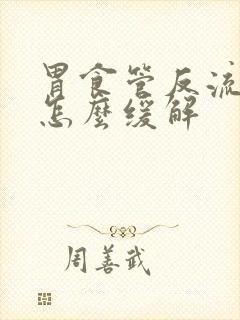 胃食管反流
怎麼缓解
周善武